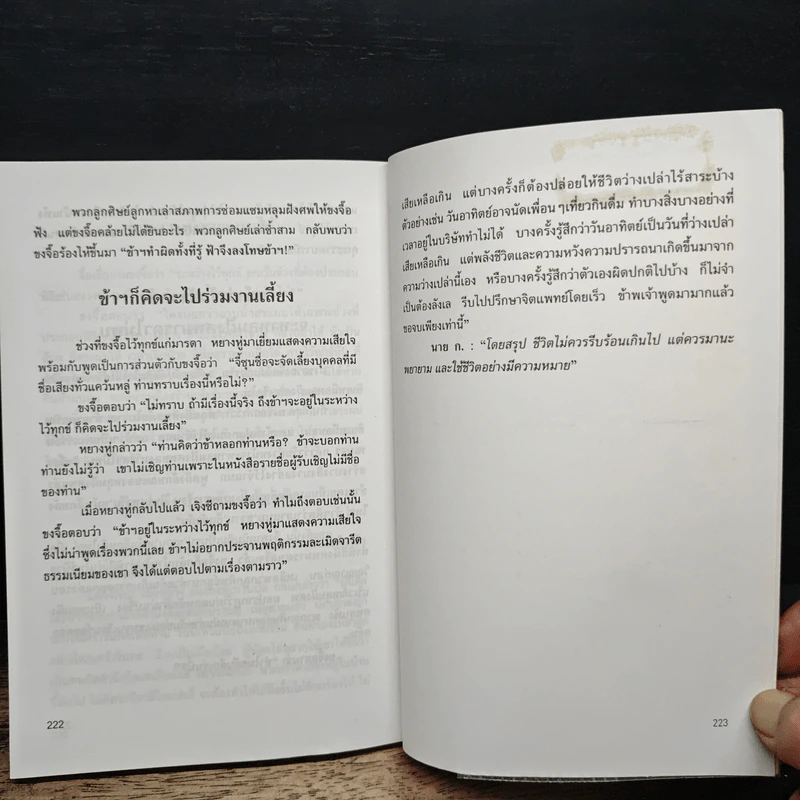 พวกลูกศิษย์ลูกหาเล่าสภาพการซ่อมแซมหลุมฝังศพให้ขงจื๊อ
ฟัง แต่ขงจื๊อคล้ายไม่ได้ยินอะไร พวกลูกศิษย์เล่าซ้ำสาม กลับพบว่า
ขงจื๊อร้องไห้ขึ้นมา “ข้าฯทำผิดทั้งที่รู้ ฟ้าจึงลงโทษข้าฯ!”
ข้าฯก็คิดจะไปร่วมงานเลี้ยง
ช่วงที่ขงจื๊อไว้ทุกข์แก่มารดา หยางหู่มาเยี่ยมแสดงความเสียใจ
พร้อมกับพูดเป็นการส่วนตัวกับขงจื๊อว่า “จี้ซุนซื่อจะจัดเลี้ยงบุคคลที่มี
ชื่อเสียงทั่วแคว้นหลู่ ท่านทราบเรื่องนี้หรือไม่?”
ขงจื๊อตอบว่า “ไม่ทราบ ถ้ามีเรื่องนี้จริง ถึงข้าฯจะอยู่ในระหว่าง
ไว้ทุกข์ ก็คิดจะไปร่วมงานเลี้ยง”
หยางหู่กล่าวว่า “ท่านคิดว่าข้าหลอกท่านหรือ? ข้าจะบอกท่าน
ท่านยังไม่รู้ว่า เขาไม่เชิญท่านเพราะในหนังสือรายชื่อผู้รับเชิญไม่มีชื่อ
ของท่าน”
เมื่อหยางหู่กลับไปแล้ว เจิงซีถามขงจื๊อว่า ทำไมถึงตอบเช่นนั้น
ขงจื๊อตอบว่า “ข้าฯอยู่ในระหว่างไว้ทุกข์ หยางหู่มาแสดงความเสียใจ
ซึ่งไม่น่าพูดเรื่องพวกนี้เลย ข้าฯไม่อยากประจานพฤติกรรมละเมิดจารีต
ธรรมเนียมของเขา จึงได้แต่ตอบไปตามเรื่องตามราว”
222
เสียเหลือเกิน แต่บางครั้งก็ต้องปล่อยให้ชีวิตว่างเปล่าไร้สาระบ้าง
ตัวอย่างเช่น วันอาทิตย์อาจนัดเพื่อน ๆเที่ยวกินดื่ม ทำบางสิ่งบางอย่างที่
เวลาอยู่ในบริษัททำไม่ได้ บางครั้งรู้สึกว่าวันอาทิตย์เป็นวันที่ว่างเปล่า
เสียเหลือเกิน แต่พลังชีวิตและความหวังความปรารถนาเกิดขึ้นมาจาก
ความว่างเปล่านี้เอง หรือบางครั้งรู้สึกว่าตัวเองผิดปกติไปบ้าง ก็ไม่จำ
เป็นต้องลังเล รีบไปปรึกษาจิตแพทย์โดยเร็ว ข้าพเจ้าพูดมามากแล้ว
ขอจบเพียงเท่านี้”
นาย ก. : “โดยสรุป ชีวิตไม่ควรรีบร้อนเกินไป แต่ควรมานะ
พยายาม และใช้ชีวิตอย่างมีความหมาย”
223